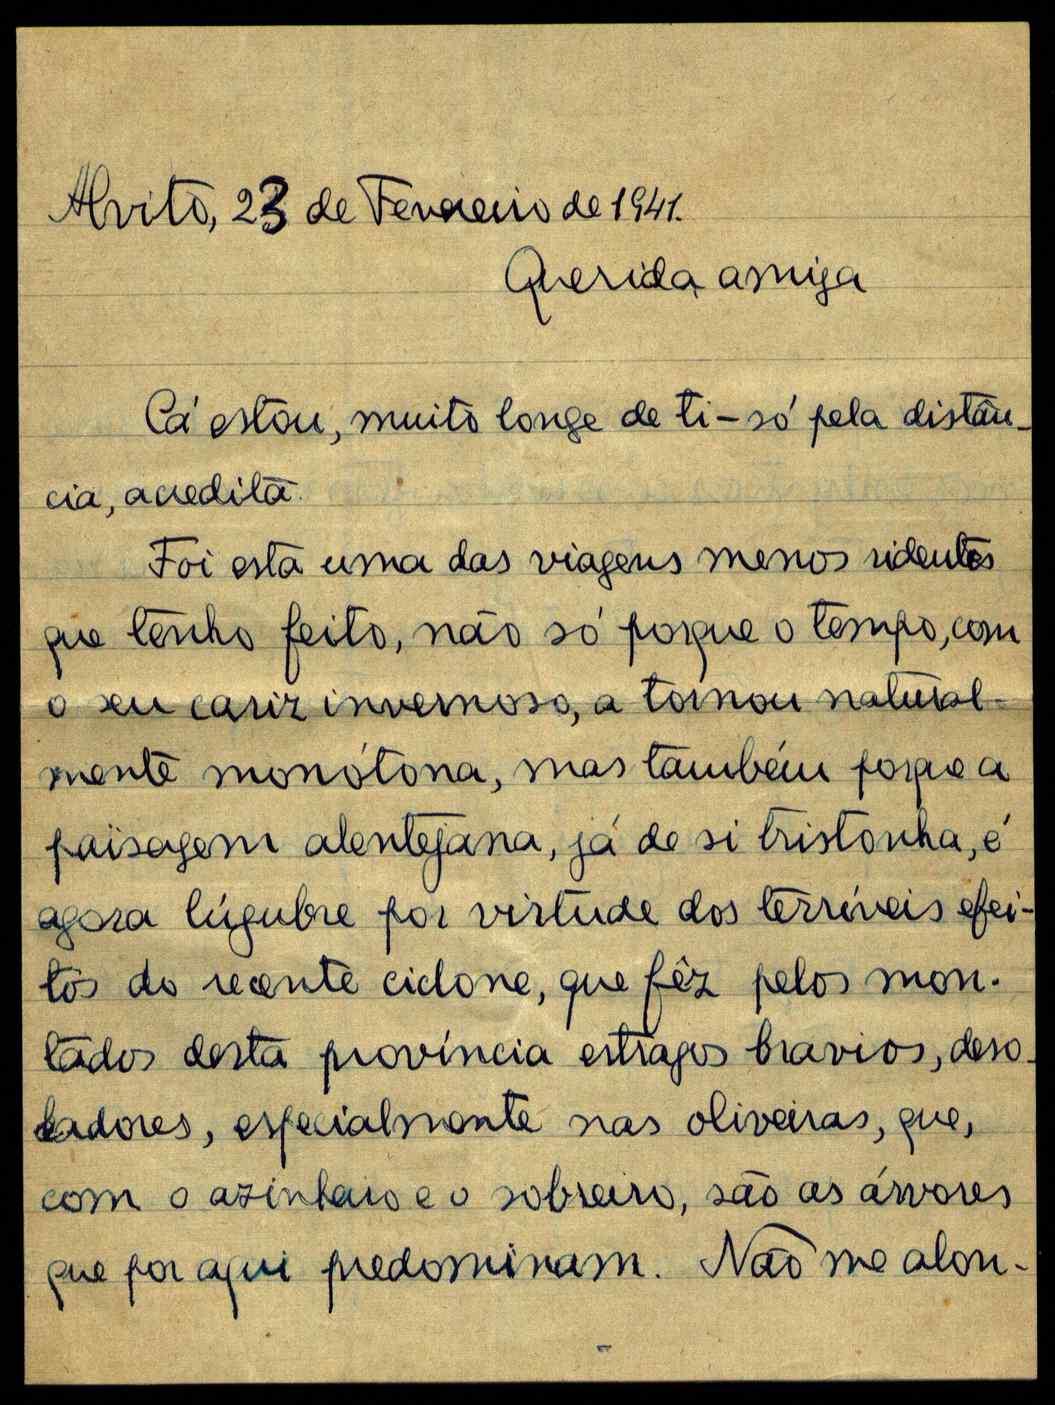 Alvito, 23 de Fevereiro de 1941.
Querida amiga
Cá estou, muito longe de ti – só pela distân-
cia, acredita.
Foi esta uma das viagens menos ridentes
que tenho feito, não só porque o tempo, com
o seu cariz invernoso, a tornou natural-
mente monótona, mas também porque a
paisagem alentejana, já de si tristonha, é
agora lúgubre por virtude dos terríveis efei-
tos do recente ciclone, que fêz pelos mon-
tados desta província estragos bravios, deso-
ladores, especialmente nas oliveiras, que,
com o azinheiro e o sobreiro, são as árvores
que por aqui predominam. Não me alon-